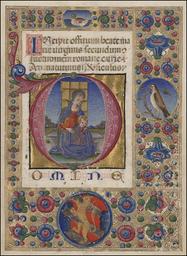 Incipit offitium beate ma
rie virginis secundum 
suetudinem romane curie
Ad matutinum
D
OMINE